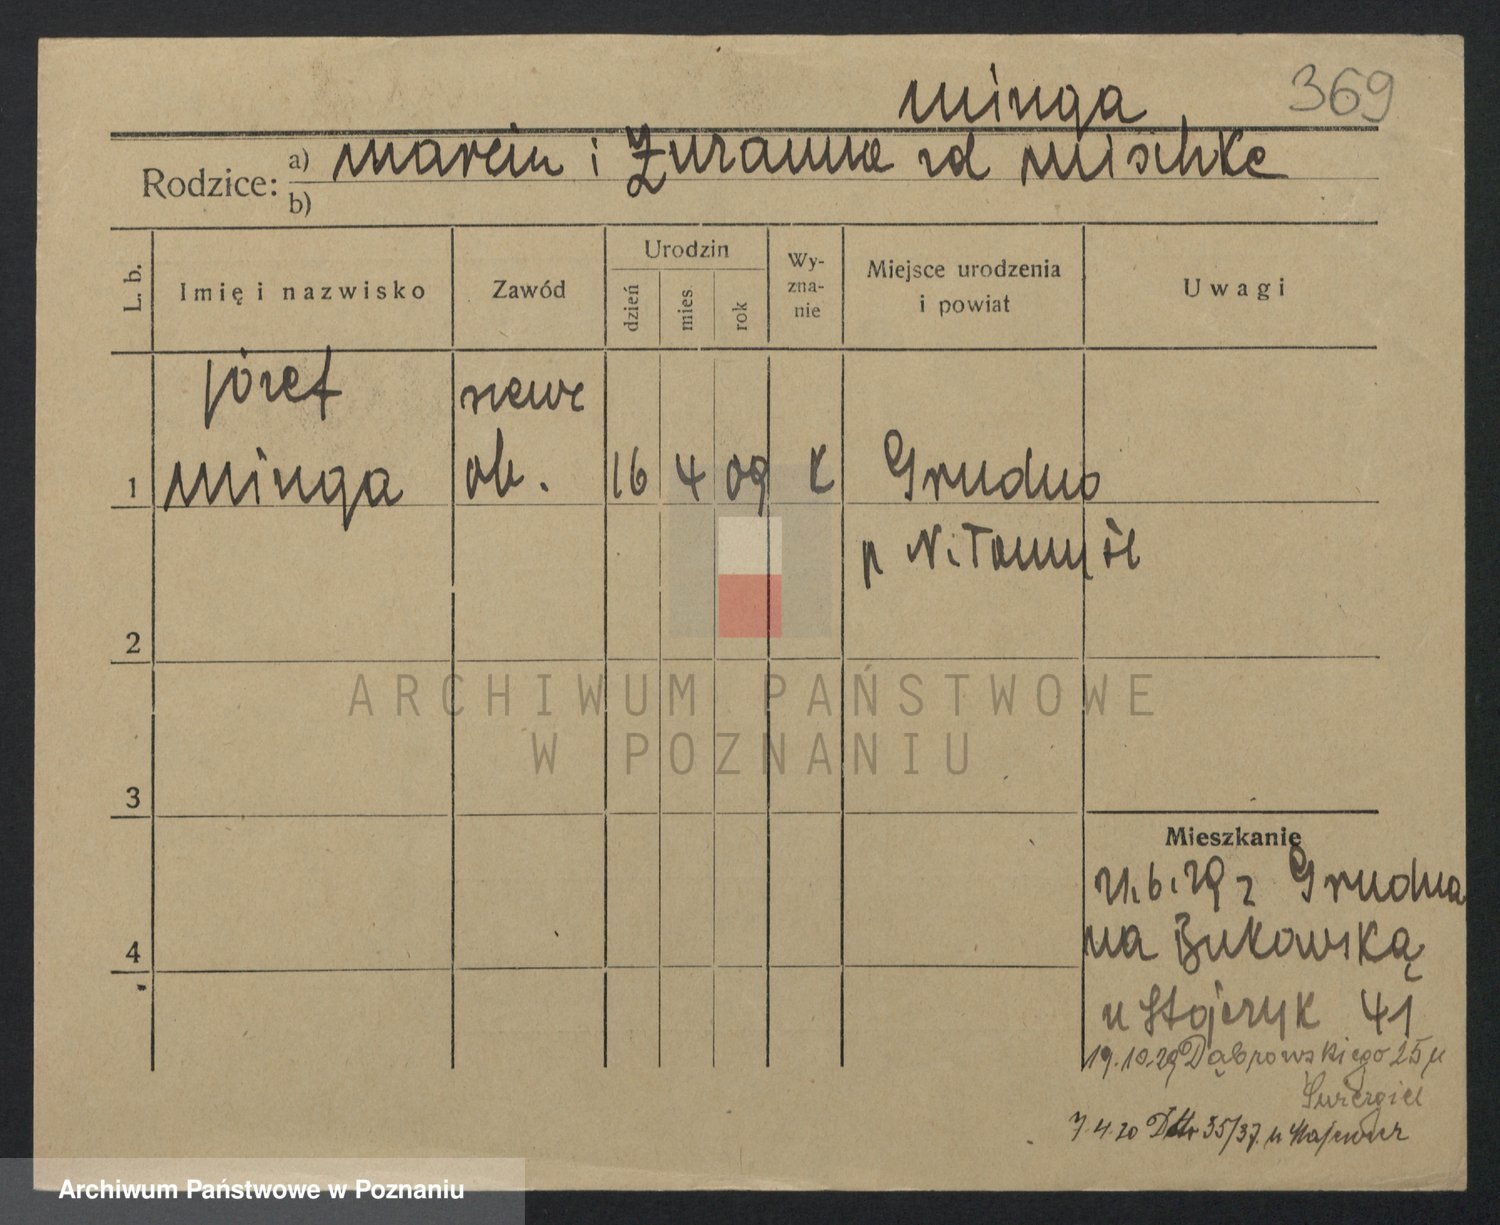 Minga 369
Rodzice: a) Marcin i Zuzanna zd Mischke
b)
L. b. Imię i nazwisko Zawód Urodzin dzień mies. rok Wy-zna-nie Miejsce urodzenia i powiat Uwagi
Józef szewc
1 Minga ob. 16 4 09 K Grudno
p N. Tomyśl
2
ARCHIWUM PAŃSTWOWE
W POZNANIU
3
Mieszkanie
21.6.29 z Grudna
4 na Bukowską
u Stojczyk 41
19.10.29 Dąbrowskiego 25 u
7.4.30 Dtto 35/37 u
Archiwum Państwowe w Poznaniu